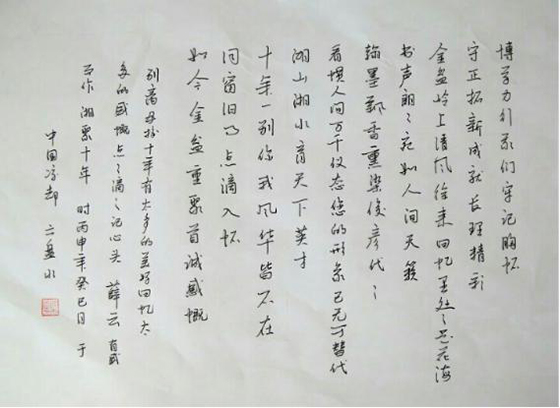 博学力行我们牢记胸怀
守正拓新成就长理精彩
金盆岭上清风徐来回忆里处处花海
书声朗朗宛如人间天籁
翰墨飘香熏染俊彦代代
看惯人间万千仪态您的形象已无可替代
湖山湘水育天下英才
十年一别你我风华皆不在
同窗旧事点滴入怀
如今金盆重聚首诚感慨
别离母校十年有太多的美好回忆太
多的感慨点点滴滴记心头 薛云 有感
而作 湘聚十年 时丙申年癸巳月 于
中国 云盘水